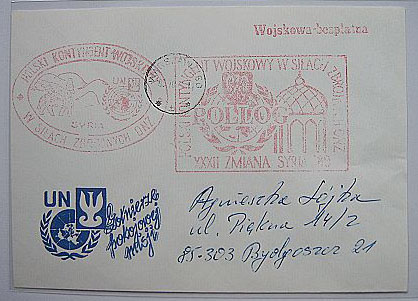 Wojskowa-bezpłatna
POLSKI KONTYNGENT WOJSKOWY
SYRIA
W SIŁACH ZBROJNYCH ONZ
POLSKI KONTYNGENT WOJSKOWY W SIŁACH ZBROJNYCH ONZ
POLLOG
XXXII ZMIANA SYRIA
UN
Żołnierze
pokojowej
misji
Agnieszka Łójka
ul. Piękna 14/2
85-303 Bydgoszcz 21